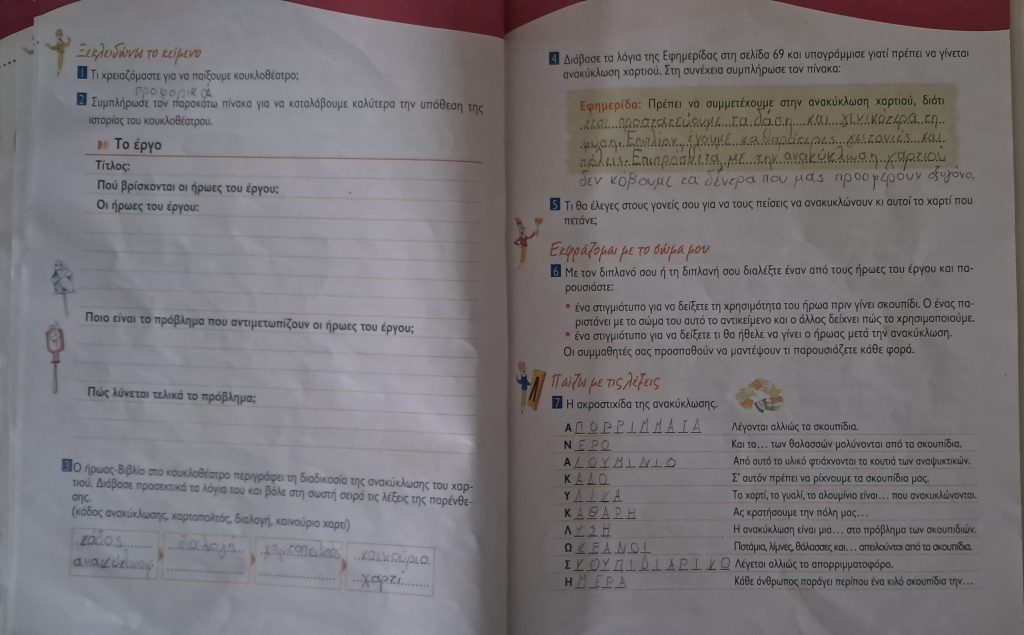 Ξεκλειδώνω το κείμενο
1 Τι χρειαζόμαστε για να παίξουμε κουκλοθέατρο;
προφορικά
2 Συμπλήρωσε τον παρακάτω πίνακα για να καταλάβουμε καλύτερα την υπόθεση της
ιστορίας του κουκλοθέατρου.
Το έργο
Τίτλος:
Πού βρίσκονται οι ήρωες του έργου;
Οι ήρωες του έργου:
Ποιο είναι το πρόβλημα που αντιμετωπίζουν οι ήρωες του έργου;
Πώς λύνεται τελικά το πρόβλημα;
3 Ο ήρωας-Βιβλίο στο κουκλοθέατρο περιγράφει τη διαδικασία της ανακύκλωσης του χαρ-
τιού. Διάβασε προσεκτικά τα λόγια του και βάλε στη σωστή σειρά τις λέξεις της παρένθε-
σης.
(κάδος ανακύκλωσης, χαρτοπολτός, διαλογή, καινούριο χαρτί)
κάδος διαλογή χαρτοπολτός καινούριο
ανακύκλωσης χαρτί
4 Διάβασε τα λόγια της Εφημερίδας στη σελίδα 69 και υπογράμμισε γιατί πρέπει να γίνεται
ανακύκλωση χαρτιού. Στη συνέχεια συμπλήρωσε τον πίνακα:
Εφημερίδα: Πρέπει να συμμετέχουμε στην ανακύκλωση χαρτιού, διότι
έτσι προστατεύουμε τα δάση και γενικότερα τη
φύση. Επιπλέον, έχουμε καθαρότερες γειτονιές και
πόλεις. Επιπρόσθετα με την ανακύκλωση χαρτιού
δεν κόβουμε τα δέντρα που μας προσφέρουν οξυγόνο.
5 Τι θα έλεγες στους γονείς σου για να τους πείσεις να ανακυκλώνουν κι αυτοί το χαρτί που
πετάνε;
Εκφράζομαι με το σώμα μου
6 Με τον διπλανό σου ή τη διπλανή σου διαλέξτε έναν από τους ήρωες του έργου και πα-
ρουσιάστε:
• ένα στιγμιότυπο για να δείξετε τη χρησιμότητα του ήρωα πριν γίνει σκουπίδι. Ο ένας πα-
ριστάνει με το σώμα του αυτό το αντικείμενο και ο άλλος δείχνει πώς το χρησιμοποιούμε.
• ένα στιγμιότυπο για να δείξετε τι θα ήθελε να γίνει ο ήρωας μετά την ανακύκλωση.
Οι συμμαθητές σας προσπαθούν να μαντέψουν τι παρουσιάζετε κάθε φορά.
Παίζω με τις λέξεις
7 Η ακροστιχίδα της ανακύκλωσης.
ΑΠΟΡΡΙΜΜΑΤΑ Λέγονται αλλιώς τα σκουπίδια.
ΝΕΡΟ Και τα... των θαλασσών μολύνονται από τα σκουπίδια.
ΑΛΟΥΜΙΝΙΟ Από αυτό το υλικό φτιάχνονται τα κουτιά των αναψυκτικών.
ΚΑΔΟ Σ' αυτόν πρέπει να ρίχνουμε τα σκουπίδια μας.
ΥΛΙΚΑ Το χαρτί, το γυαλί, το αλουμίνιο είναι... που ανακυκλώνονται.
ΚΑΘΑΡΗ Ας κρατήσουμε την πόλη μας...
ΛΥΣΗ Η ανακύκλωση είναι μια... στο πρόβλημα των σκουπιδιών.
ΩΚΕΑΝΟΙ Ποτάμια, λίμνες, θάλασσες και... απειλούνται από τα σκουπίδια.
ΣΚΟΥΠΙΔΙΑΡΙΚΟ Λέγεται αλλιώς το απορριμματοφόρο.
ΗΜΕΡΑ Κάθε άνθρωπος παράγει περίπου ένα κιλό σκουπίδια την...